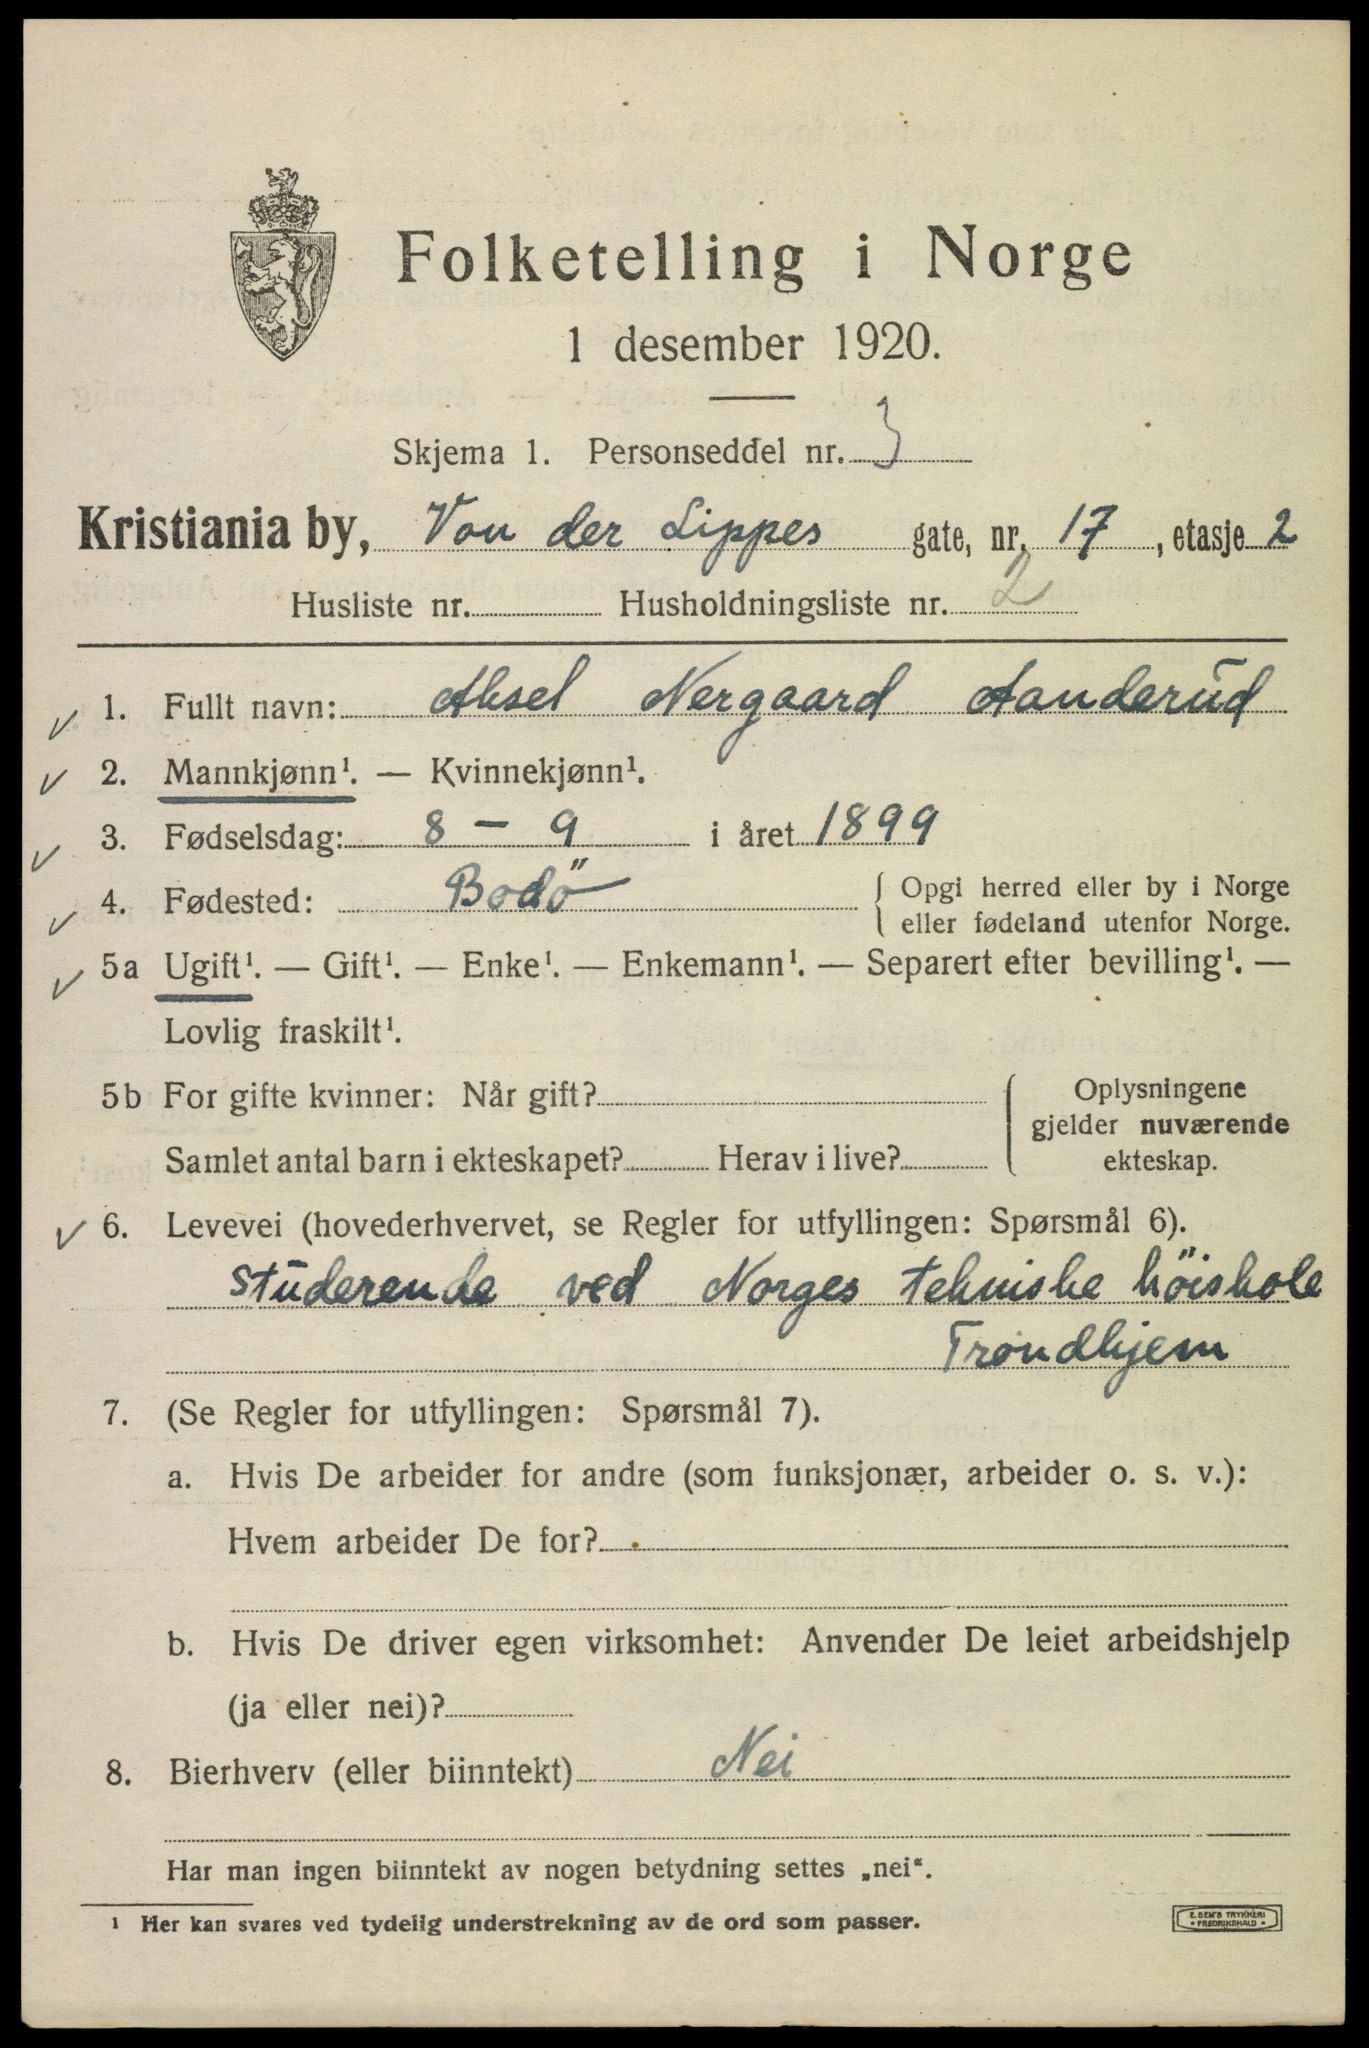 Folketelling i Norge
1 desember 1920.
Skjema 1. Personseddel nr. 3
Kristiania by, Von der Lippes gate, nr. 17, etasje 2
Husliste nr. Husholdningsliste nr. 2
1. Fullt navn: Aksel Nergaard Aanderud
2. Mannkjønn¹. — Kvinnekjønn¹.
3. Fødselsdag: 8 – 9 i året 1899
4. Fødested: Bodö { Opgi herred eller by i Norge
eller fødeland utenfor Norge.
5a Ugift¹. — Gift¹. — Enke¹. — Enkemann¹. — Separert efter bevilling¹. —
Lovlig fraskilt¹.
5b For gifte kvinner: Når gift? { Oplysningene
gjelder nuværende
Samlet antal barn i ekteskapet? Herav i live? ekteskap.
6. Levevei (hovederhvervet, se Regler for utfyllingen: Spørsmål 6).
Studerende ved Norges tekniske höiskole
Trondhjem
7. (Se Regler for utfyllingen: Spørsmål 7).
a. Hvis De arbeider for andre (som funksjonær, arbeider o. s. v.):
Hvem arbeider De for?
b. Hvis De driver egen virksomhet: Anvender De leiet arbeidshjelp
(ja eller nei)?
8. Bierhverv (eller biinntekt) Nei
Har man ingen biinntekt av nogen betydning settes „nei“.
¹ Her kan svares ved tydelig understrekning av de ord som passer.
E. SEM'S TRYKKERI
• FREDRIKSHALD •